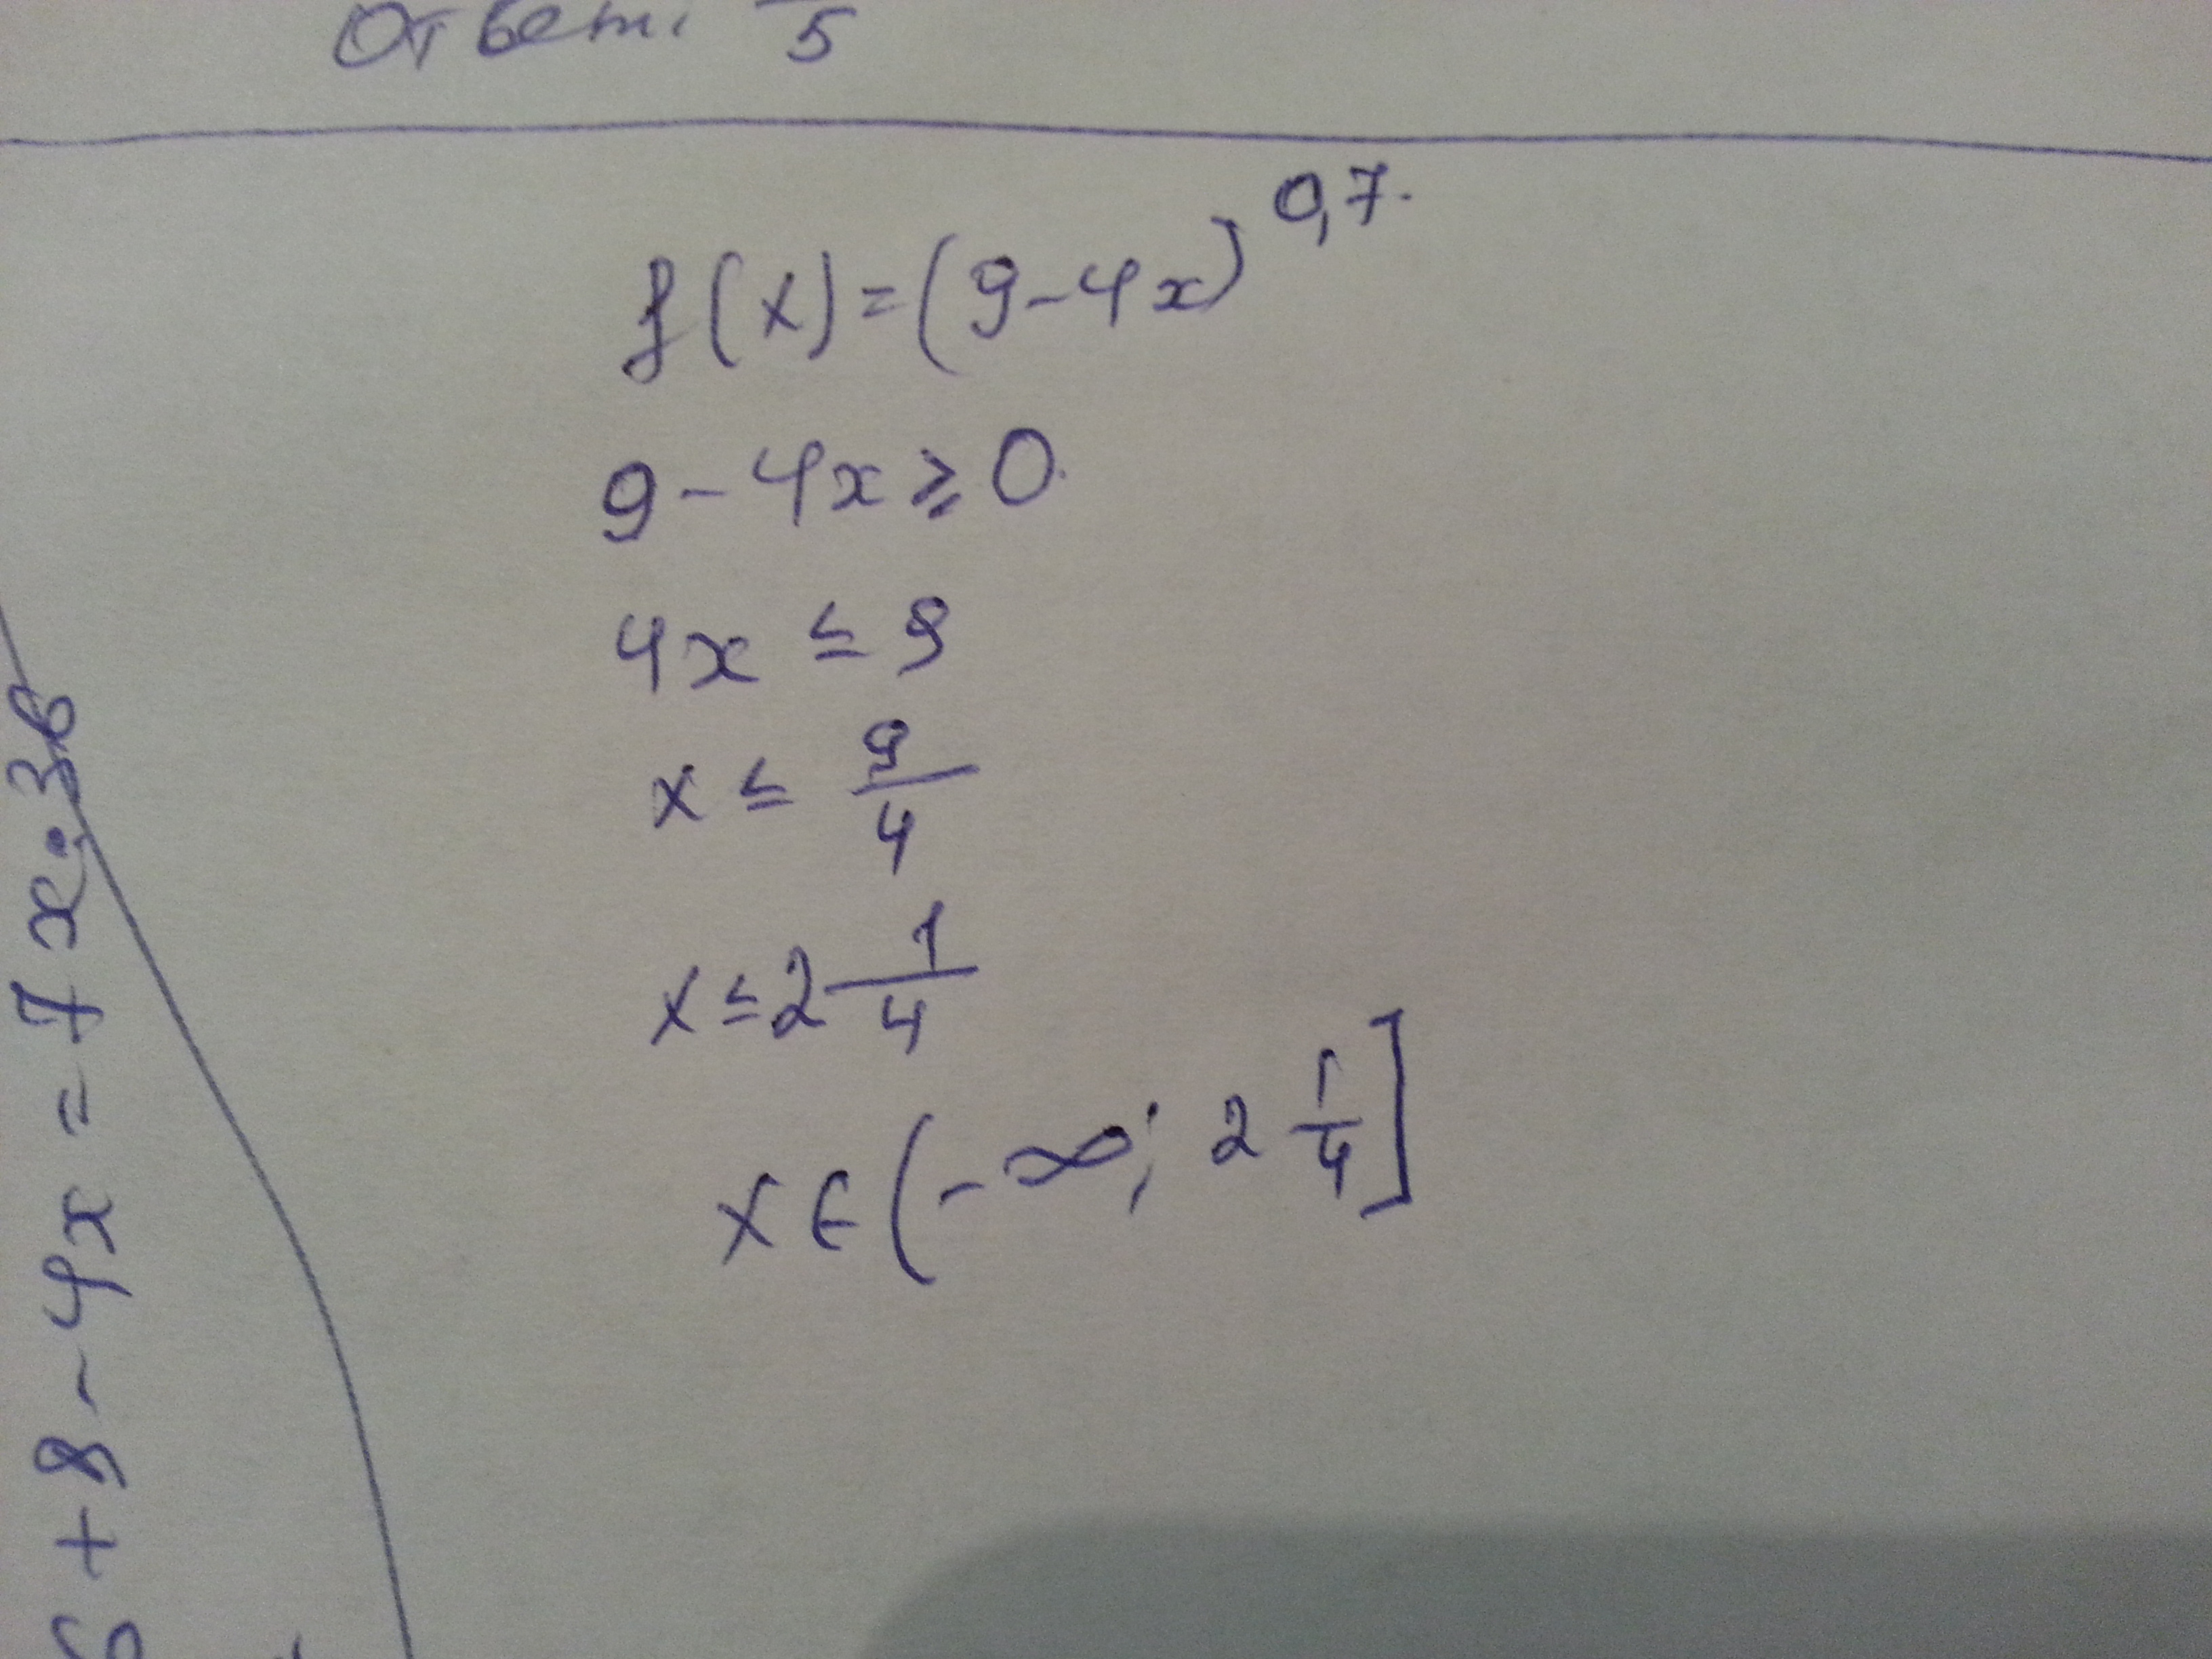 Ответ: 5
f(x)=(9-4x)^0,7.
9-4x⩾0.
4x ≤ 9
x ≤ 9/4
x ≤ 2 1/4
x ∈ (-∞; 2 1/4]
+8-4x=7x·36